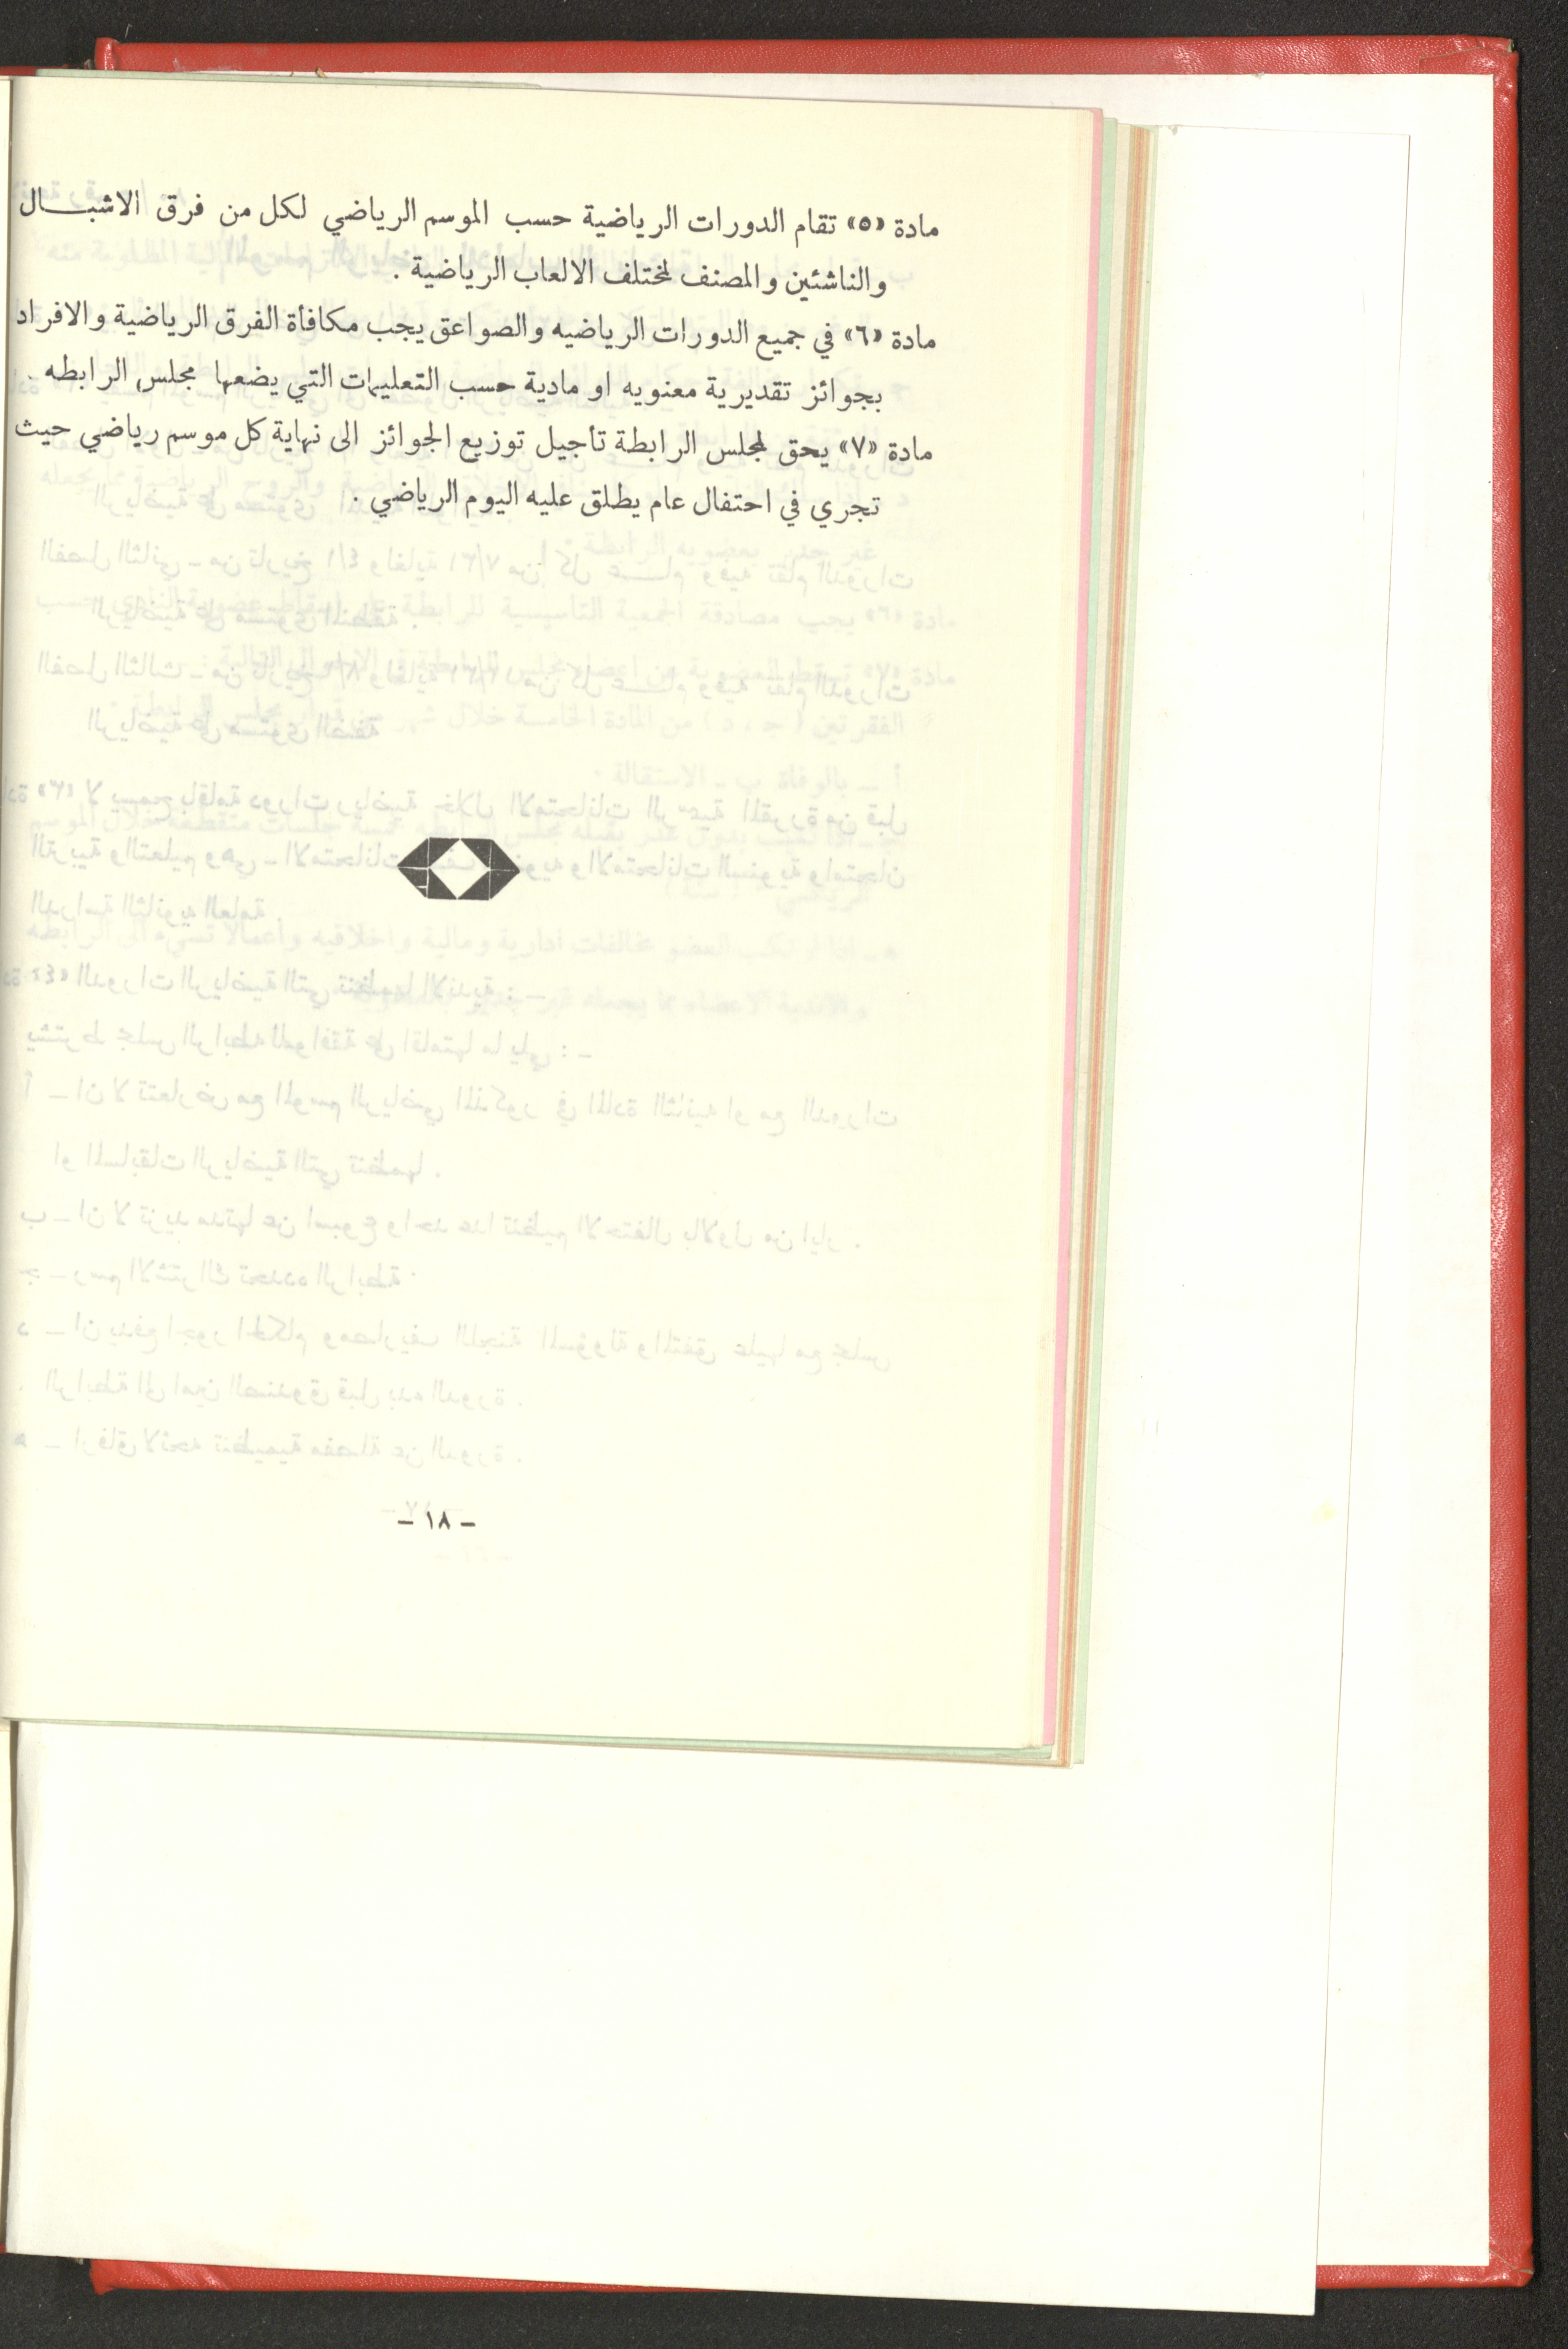 مادة «٥» تقام الدورات الرياضية حسب الموسم الرياضي لكل من فرق الاشبـــال
والناشئين والمصنف لمختلف الالعاب الرياضية .
مادة «٦» في جميع الدورات الرياضيه والصواعق يجب مكافأة الفرق الرياضية والافراد
بجوائز تقديرية معنويه او مادية حسب التعليمات التي يضعها مجلس الرابطه .
مادة «٧» يحق لمجلس الرابطة تأجيل توزيع الجوائز الى نهاية كل موسم رياضي حيث
تجري في احتفال عام يطلق عليه اليوم الرياضي .
- ١٨ -